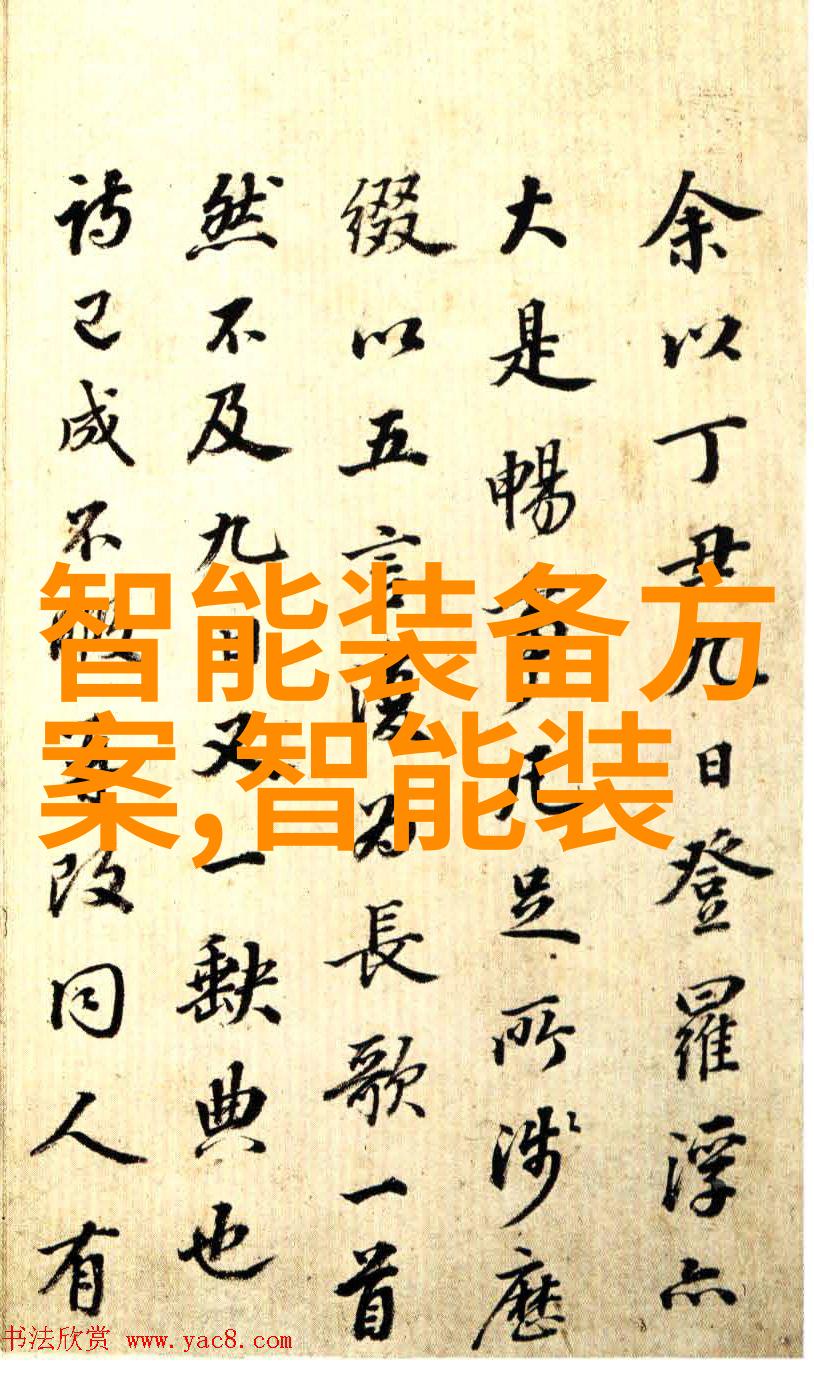 余以丁丑九日登羅浮亦
大是暢凡足所涉歷
綴以五言復為長歌一首
然不及九日又一缺典也
詩已成不改同人有
智能装备方
案,智能装
书法欣赏 www.yac8.com